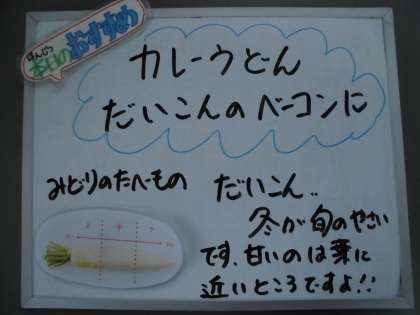 ほんじつ
本日のおすすめ
カレーうどん
だいこんのベーコンに
みどりのたべもの
だいこん..
冬が旬のやさい
です、甘いのは葉に
近いところですよ!!